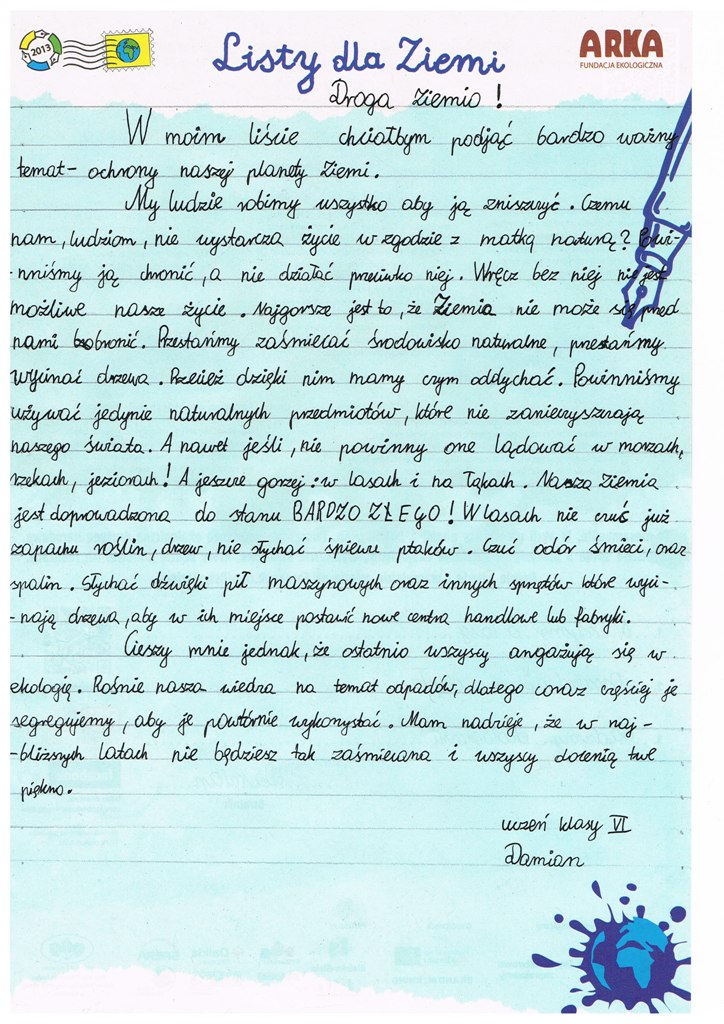 2013
Listy dla Ziemi
ARKA
FUNDACJA EKOLOGICZNA
Droga Ziemio !
W moim liście chciałbym podjąć bardzo ważny
temat - ochrony naszej planety Ziemi.
My ludzie robimy wszystko aby ją zniszczyć. Czemu
nam, ludziom, nie wystarcza życie w zgodzie z matką naturą? Powi-
-nniśmy ją chronić, a nie działać przeciwko niej. Wręcz bez niej nie jest
możliwe nasze życie. Najgorsze jest to, że Ziemia nie może się przed
nami obronić. Przestańmy zaśmiecać środowisko naturalne, przestańmy
wycinać drzewa. Przecież dzięki nim mamy czym oddychać. Powinniśmy
używać jedynie naturalnych przedmiotów, które nie zanieczyszczają
naszego świata. A nawet jeśli, nie powinny one lądować w morzach,
rzekach, jeziorach! A jeszcze gorzej: w lasach i na łąkach. Nasza Ziemia
jest doprowadzona do stanu BARDZO ZŁEGO! W lasach nie czuć już
zapachu roślin, drzew, nie słychać śpiewu ptaków. Czuć odór śmieci, oraz
spalin. Słychać dźwięki pił maszynowych oraz innych sprzętów które wyci-
-nają drzewa, aby w ich miejsce postawić nowe centra handlowe lub fabryki.
Cieszy mnie jednak, że ostatnio wszyscy angażują się w
ekologię. Rośnie nasza wiedza na temat odpadów, dlatego coraz częściej je
segregujemy, aby je powtórnie wykorzystać. Mam nadzieje, że w naj-
-bliższych latach nie będziesz tak zaśmiecana i wszyscy docenią twe
piękno.
uczeń klasy VI
Damian